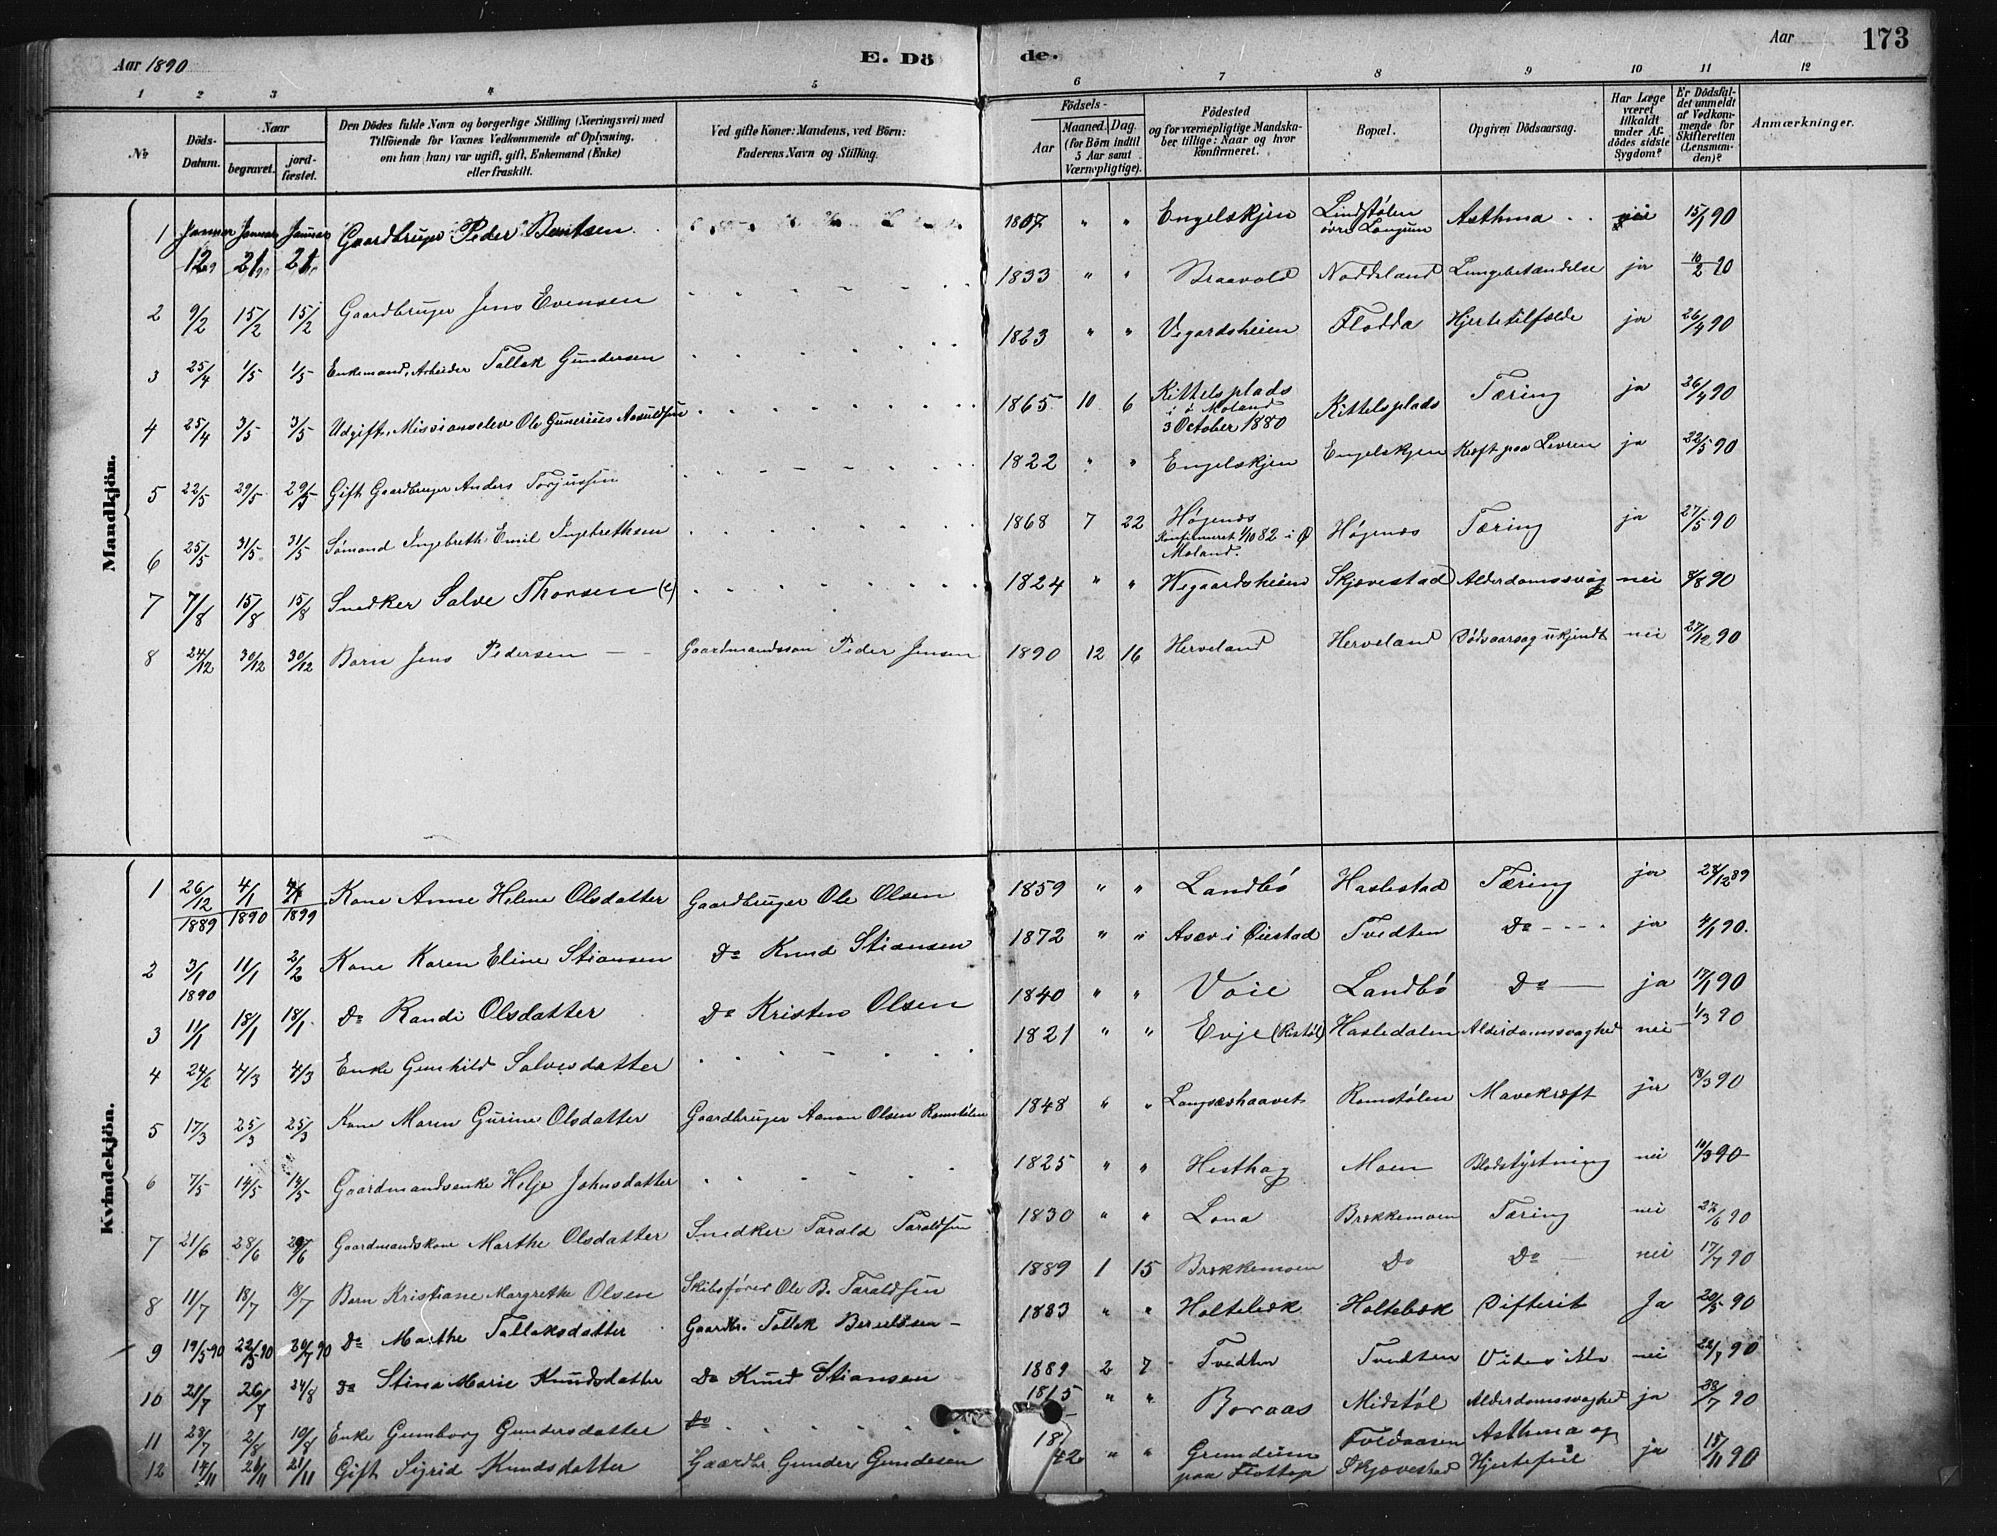 Aar 1890 E. Dö de. Aar 173
1 2 3 4 5 6 7 8 9 10 11 12
№
Döds-Datum.
Naar
begravet.
jord-fæstet.
Den Dödes fulde Navn og borgerlige Stilling (Næringsvei) med
Tilföiende for Voxnes Vedkommende af Oplysning,
om han (hun) var ugift, gift, Enkemand (Enke)
eller fraskilt.
Ved gifte Koner: Mandens, ved Börn:
Faderens Navn og Stilling.
Födsels-
Aar
Maaned. Dag.
(for Börn indtil
5 Aar samt
Værnepligtige).
Födested
og for værnepligtige Mandska-
ber tillige: Naar og hvor
konfirmeret.
Bopæl.
Opgiven Dödsaarsag.
Har Læge
været
tilkaldt
under Af-
dödes sidste
Sygdom?
Er Dödsfal-
det anmeldt
af Vedkom-
mende for
Skifteretten
(Lensman-
den)?
Anmærkninger.
Mandkjön.
1 Januar 12 Januar 21 Januar 21 Gaardbruger Peder Bentsen 1807 " " Engelskjen Lindstølen øvre Langum Asthma nei 15/1 90
2 9/2 15/2 15/2 Gaardbruger Jens Evensen 1833 " " Braavold Noddeland Lungebetændelse ja 10/2 90
3 25/4 1/5 1/5 Enkemand, Arbeider Tallak Gundersen 1823 " " Vegardsheien Flodda Hjertetilfælde ja 26/4 90
4 25/4 3/5 3/5 Udgift, Missionselev Ole Gunerius Aasuldsen 1865 10 6 Kittelsplads i ø Moland 3 October 1880 Kittelsplads Tæring ja 26/4 90
5 22/5 29/5 29/5 Gift Gaardbruger Anders Torjussen 1822 " " Engelskjen Engelskjen Kræft paa Levren ja 22/5 90
6 25/5 31/5 31/5 Sømand Ingebreth Emil Ingebrethsen 1868 7 22 Høgenæs Konfirmeret 1/10 82 i Ø Moland. Høgenæs Tæring ja 27/5 90
7 7/8 15/8 15/8 Snedker Salve Thorsen (e) 1824 " " Wegaardsheien Skjævestad Alderdomssvag nei 8/8 90
8 24/12 30/12 30/12 Barn Jens Pedersen Gaardmandsson Peder Jensen 1890 12 16 Herveland Herveland Dødsaarsag ukjendt nei 27/12 90
Kvindekjön.
1 26/12 1889 4/1 1890 4/1 1899 Kone Anne Helene Olsdatter Gaardbruger Ole Olsen 1859 " " Landbø Haslestad Tæring ja 28/12 89
2 3/1 1890 11/1 2/2 Kone Karen Eline Stiansen Do Knud Stiansen 1872 " " Asæv i Øiestad Tvedten Do ja 4/1 90.
3 11/1 18/1 18/1 Do Randi Olsdatter Do Kristen Olsen 1840 " " Voie Landbø Do ja 17/1 90
4 24/2 4/3 4/3 Enke Gunhild Salvesdatter 1821 " " Evje (Ristøl) Hasledalen Alderdomssvaghed nei 1/3 90
5 17/3 25/3 25/3 Kone Maren Gurine Olsdatter Gaardbruger Aanon Olsen Ramstølen 1848 " " Langsæehaavet Ramstølen Mavekræft ja 18/3 90
6 7/5 14/5 14/5 Gaardmandsenke Helje Johnsdatter 1825 " " Hesthag Moen Blodstyrtning nei 10/3 90
7 21/6 28/6 29/6 Gaardmandskone Marthe Olsdatter Snedker Tarald Taraldsen 1830 " " Lona Brekkemoen Tæring nei 22/6 90
8 11/7 18/7 18/7 Barn Kristiane Margrethe Olsen Skibsfører Ole B. Taraldsen 1889 1 15 Brekkemoen Do Do nei 17/7 90
9 19/5 90 22/5 90 20/7 90 Do Marthe Tallaksdatter Gaardbr. Tallak Berulsen 1883 " " Holtebæk Holtebæk Difterit Ja 20/5 90
10 21/7 26/7 24/8 Do Stina Marie Knudsdatter Do Knud Stiansen 1889 2 7 Tvedten Tvedten Vides ikke nei 22/7 90
11 23/7 2/8 10/8 Enke Gumborg Gundersdatter Do 1815 " " Boraas Midstøl Alderdomssvaghed ja 28/7 90
12 14/11 21/11 21/11 Gift Sigrid Knudsdatter Gaardbr Gunder Gundesen 1842 " " Grundsum paa Flottop Skjævestad Asthma og Hjertefeil ja 15/11 90